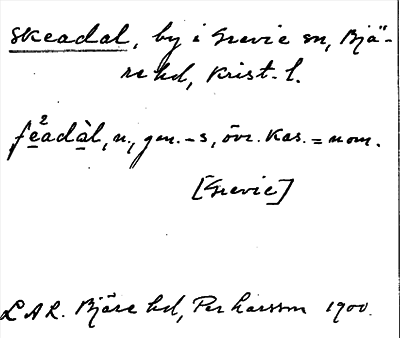 Skeadal, by i Grevie sn, Bjä-
re hd, Krist. l.
fe²adàl, n., gen. -s, övr. kas. = nom.
[Grevie]
LAR. Bjäre hd, Per Larsson 1900.